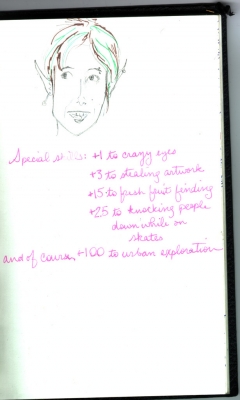 Special skills: +1 to crazy eyes
+3 to stealing artwork
+15 to fresh fruit finding
+25 to knocking people
down while on
skates
and of course, +100 to urban exploration